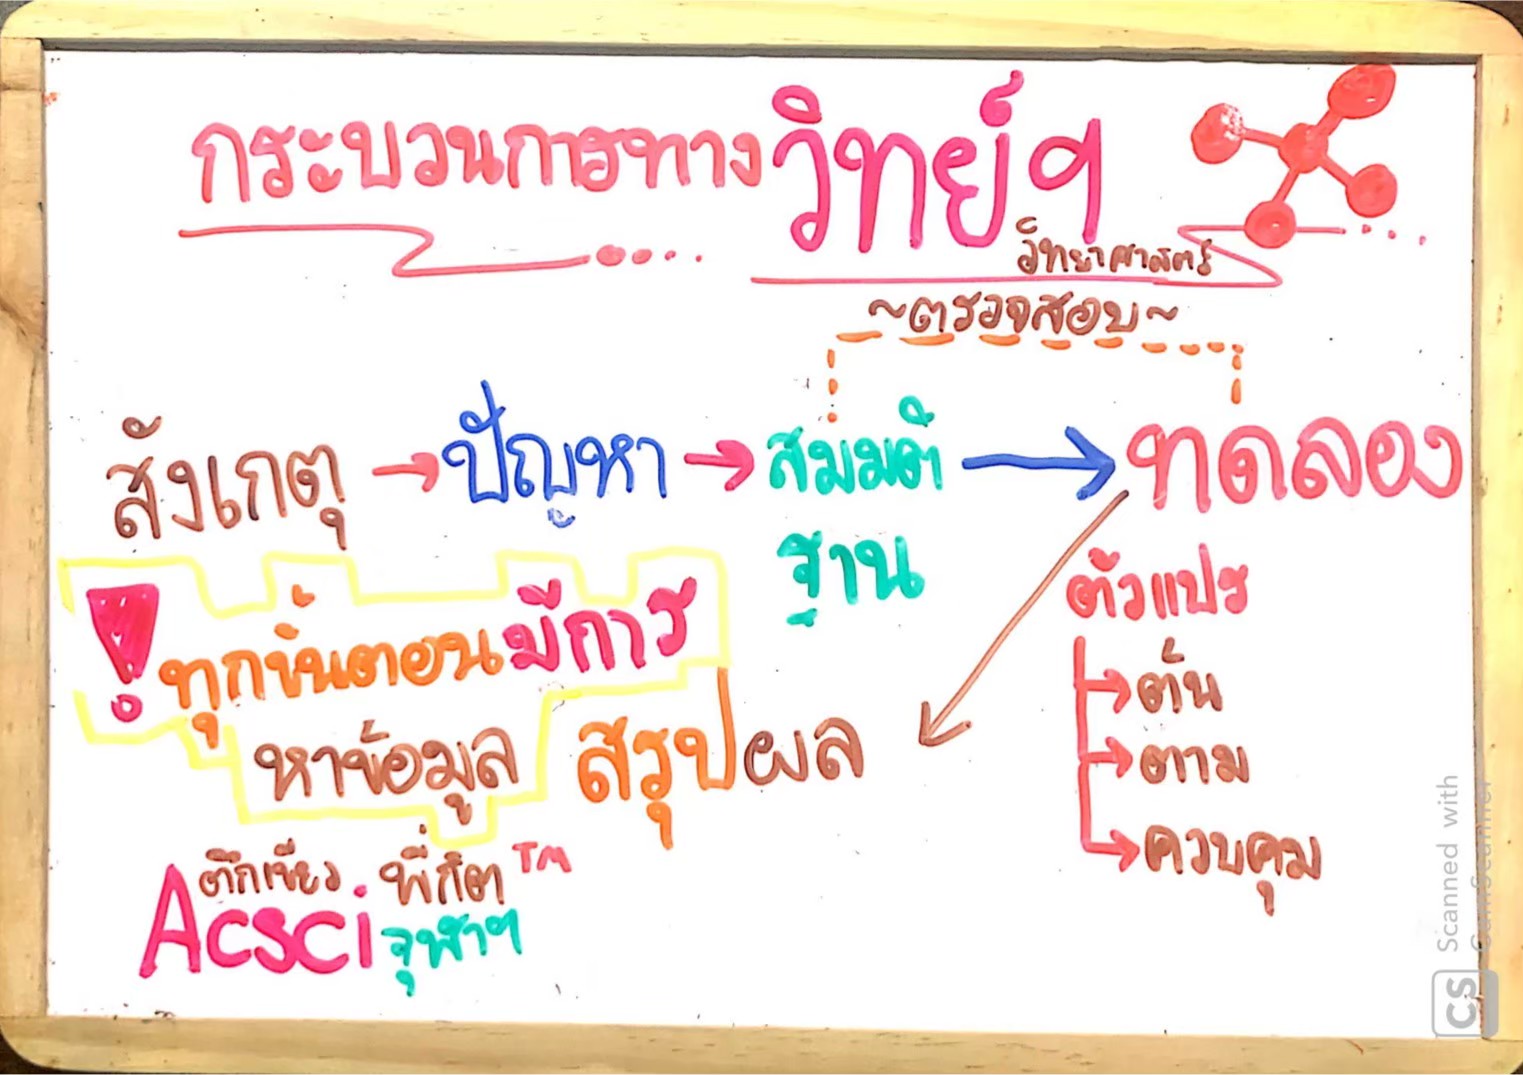 กระบวนการทางวิทย์ฯ
วิทยาศาสตร์
~ตรวจสอบ~
สังเกตุ → ปัญหา → สมมติ → ทดลอง
ฐาน
ตัวแปร
ต้น
ตาม
ควบคุม
! ทุกขั้นตอนมีการ
หาข้อมูล
สรุปผล
ติกเขียว พี่กิต™
Acsci จุฬาฯ
Scanned with
CamScanner
CS